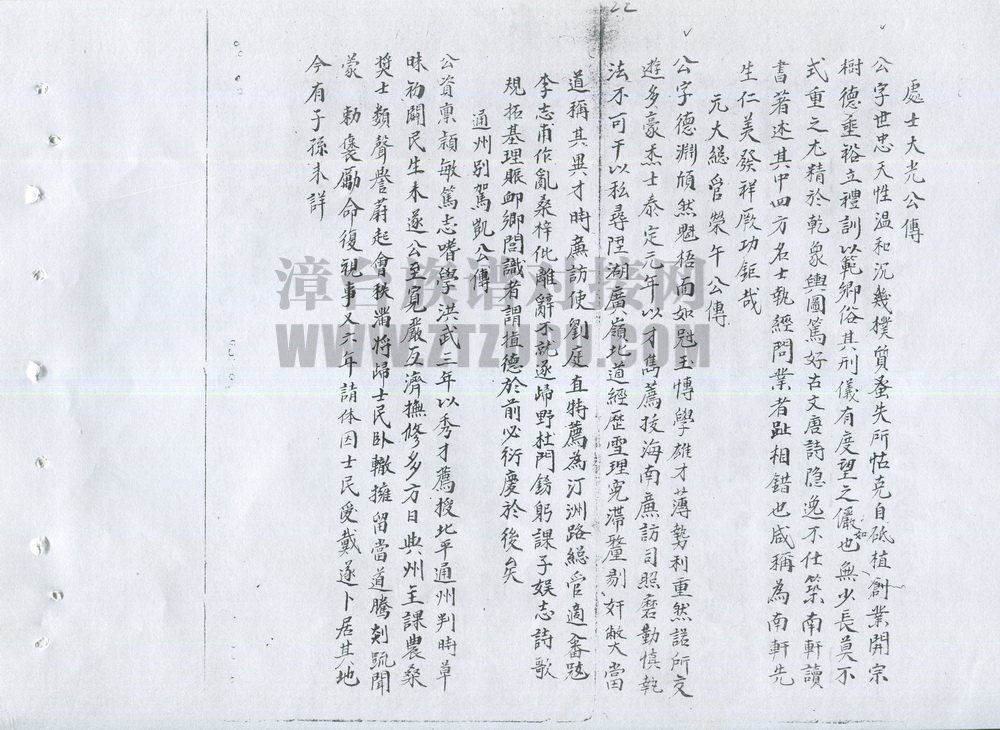 22
處士大光公傳
公字世忠天性温和沉幾樸質蚤失所怙克自砥植創業開宗
樹德垂裕立禮訓以範鄉俗其刑儀有度望之儼如也無少長莫不
式重之尤精於乾象輿圖篤好古文唐詩隐逸不仕築南軒讀
書著述其中四方名士執經問業者趾相錯也咸稱為南軒先
生仁美發祥厥功鉅哉
元大総管榮午公傳
公字德淵頎然魁梧而如冠玉博學雄才薄勢利重然諾所交
遊多豪杰士泰定元年以才雋薦授海南亷訪司照磨勤慎執
法不可干以私尋陞湖廣嶺北道經歷雪理寃滞釐剔奸敝大當
道稱其異才時亷訪使劉庭直特薦為汀洲路総管適畬冦
李志甫作亂桑梓仳離辭不就遂歸野杜門銹躬課子娱志詩歌
規拓基理賑卹鄉閭識者謂植德於前必衍慶於後矣
通州别駕凱公傳
公資禀颖敏篤志嗜學洪武三年以秀才薦授北平通州判時草
昧初闢民生未遂公至寬嚴互濟撫修多方日與州主課農桑
奬士類聲譽蔚起會秩滿将歸士民卧轍擁留當道騰剡疏聞
蒙 勅褒勵命復視事又六年請休因士民受戴遂卜居其地
今有子孫未詳
漳台族谱对接网
WWW.ZTZUPU.COM